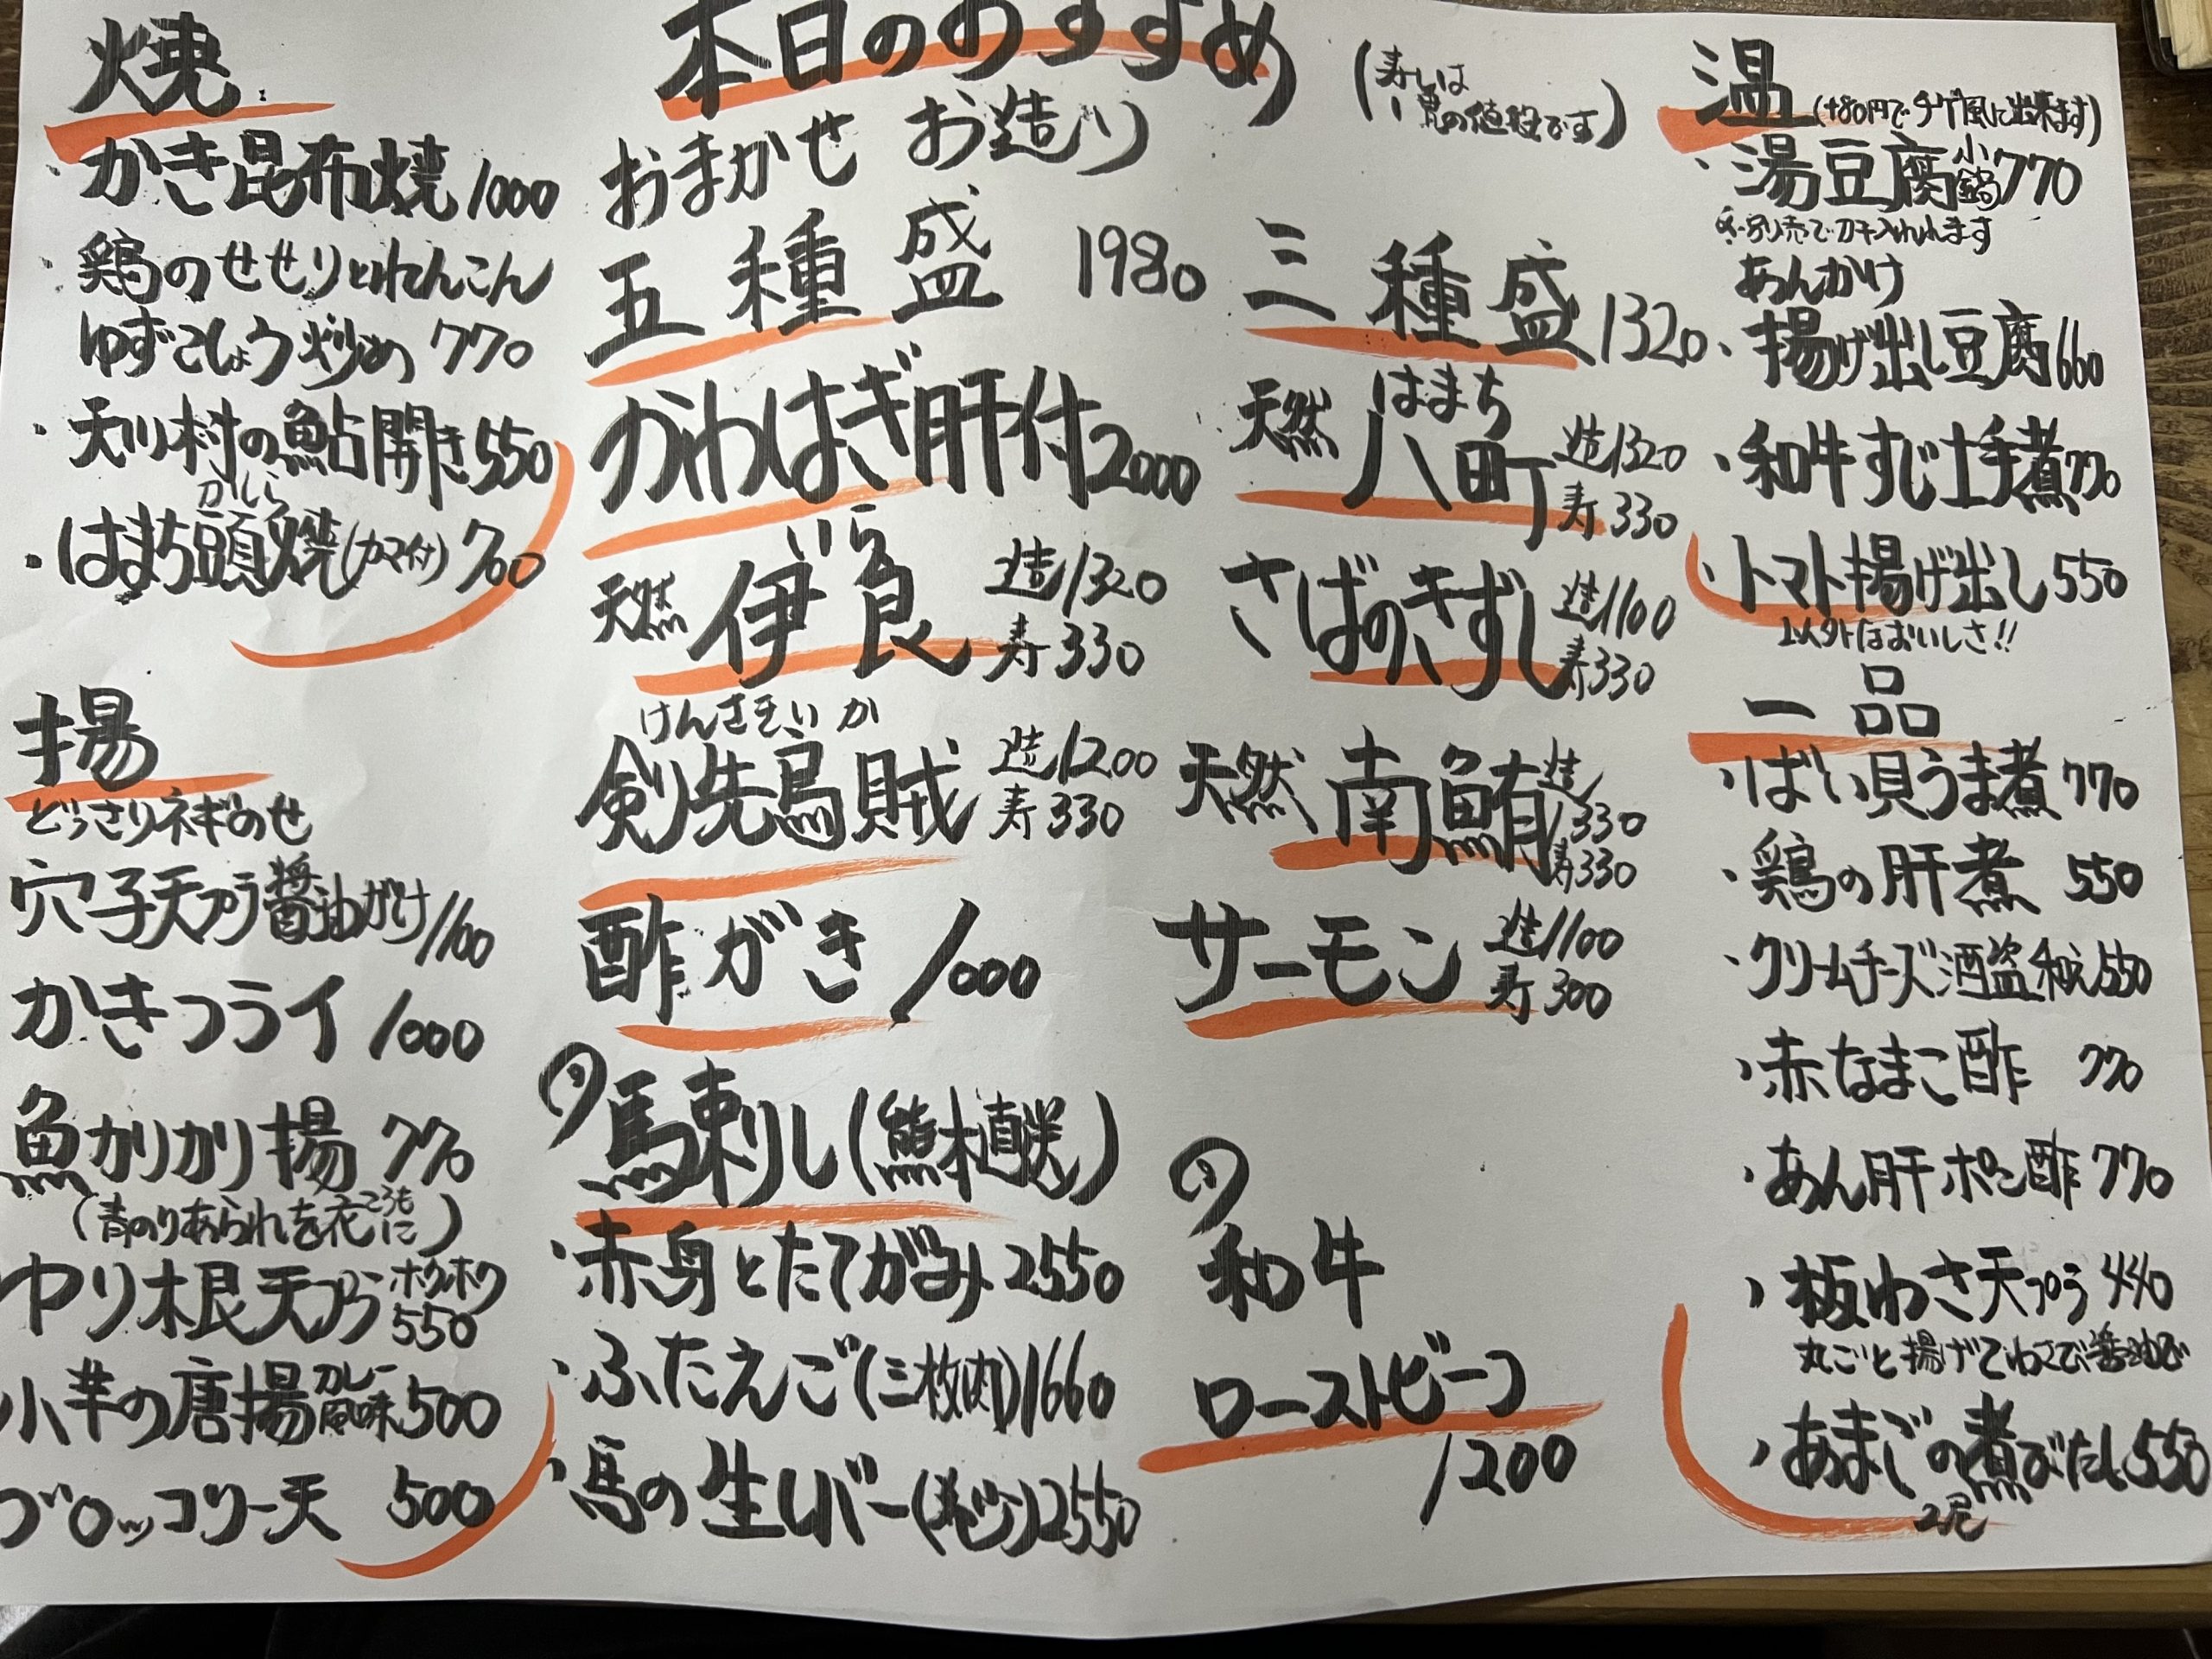 本日のおすすめ
(寿しは
一貫の値段です)
焼
・かき昆布焼 1000
・鶏のせせりとれんこん
ゆずこしょう炒め 770
・天川村の鮎開き 550
かしら
・はまち頭焼(カマ付) 700
揚
どっさりネギのせ
穴子天プラ醤油がけ 1100
かきフライ 1000
魚カリカリ揚 770
(青のりあられを衣に)
ころも
ゆり根天プラ ホクホク
550
小芋の唐揚 カレー風味 500
ブロッコリー天 500
おまかせ お造り
五種盛 1980
三種盛 1320
かわはぎ肝付 2000
いら
天然 伊良 造1320
寿330
けんさきいか
剣先烏賊 造1200
寿330
酢がき 1000
はまち
天然 八町 造1320
寿330
さばのきずし 造1100
寿330
天然 南鮪 造1330
寿330
サーモン 造1100
寿300
馬刺し(熊本直送)
・赤身とたてがみ 2550
・ふたえご(三枚肉) 1660
・馬の生レバー 2550
和牛
ローストビーフ
1200
温 (+80円でチゲ風に出来ます)
・湯豆腐 小鍋 770
別売でカキ入れれます
あんかけ
・揚げ出し豆腐 660
・和牛すじ土手煮 770
・トマト揚げ出し 550
以外はおいしさ!!
一品
・ばい貝うま煮 770
・鶏の肝煮 550
・クリームチーズ酒盗和え 550
・赤なまこ酢 770
・あん肝ポン酢 770
・板わさ天プラ 440
丸ごと揚げてわさび醤油で
・あまごの煮びたし 550
2尾